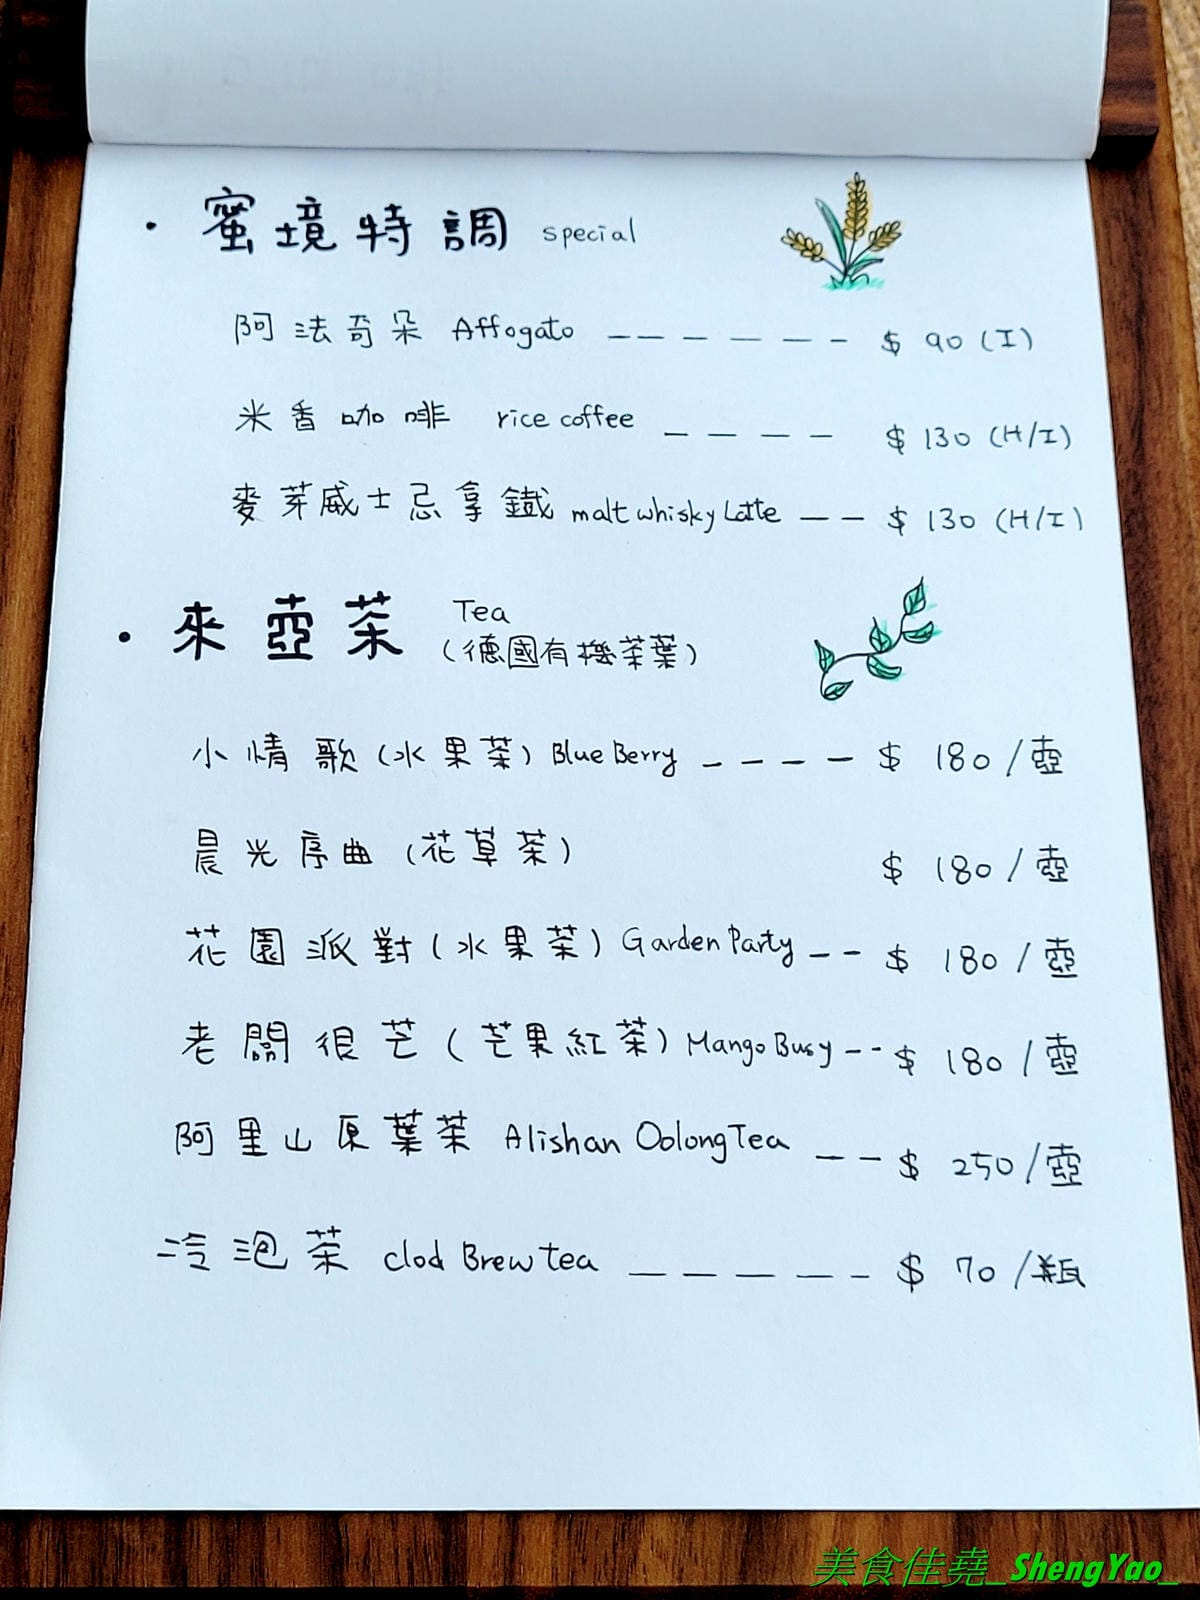 ・蜜境特調 special
阿法奇朵 Affogato ------ $ 90 (I)
米香咖啡 rice coffee ---- $ 130 (H/I)
麥芽威士忌拿鐵 malt whisky Latte -- $ 130 (H/I)
・來壺茶 Tea
(德國有機茶葉)
小情歌(水果茶) Blue Berry ---- $ 180/壺
晨光序曲(花草茶) $ 180/壺
花園派對(水果茶) Garden Party -- $ 180/壺
老闆很芒(芒果紅茶) Mango Busy -- $ 180/壺
阿里山原葉茶 Alishan Oolong Tea -- $ 250/壺
冷泡茶 clod Brew tea ----- $ 70/瓶
美食佳堯_ShengYao_